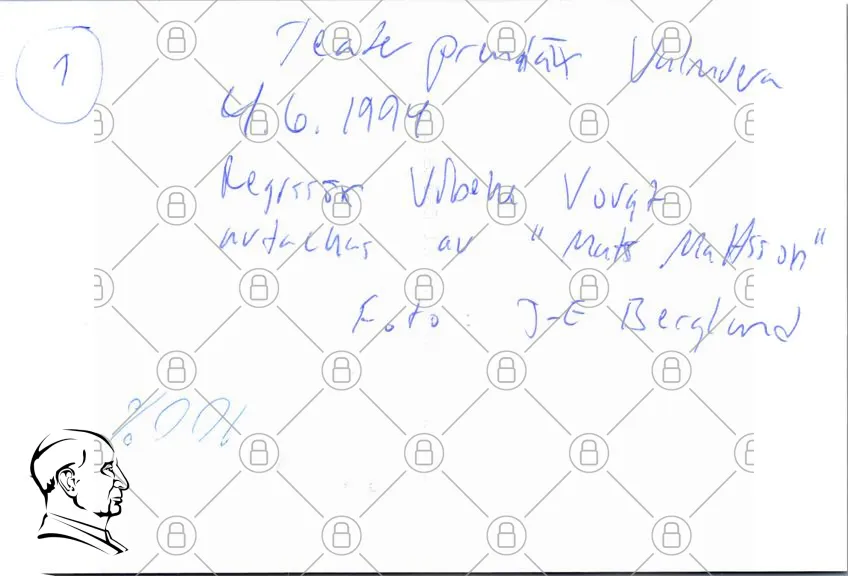 1
Teater premiär Valmdera
4/6. 1994
Regissör Vibeke Voigt
avtackas av "Mats Mattsson"
Foto: J-E Berglund